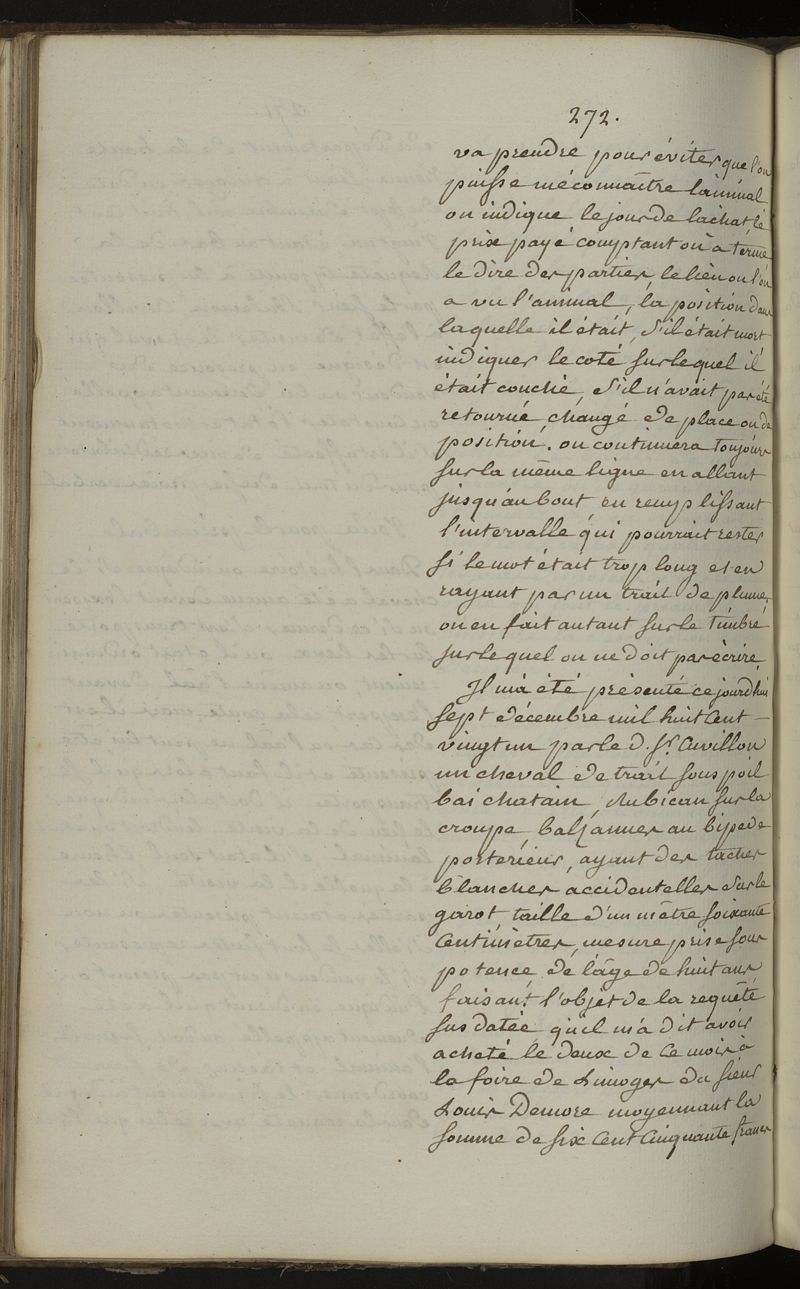 272.
va prendre pour éviter que l'on
puisse méconnaître l'animal
on indique le jour de l'achat, le
prix payé comptant ou à terme
le dire des parties, le lieu ou l'on
a vu l'animal, la position dans
laquelle il était, s'il était mort
indiquer le coté sur lequel il
était couché, s'il n'avait pas été
retourné, changé de place ou de
position. on continuera toujours
sur la même ligne en allant
jusqu'au bout, en remplissant
l'intervalle qui pourrait rester
si le mot était trop long et en
rayant par un trait de plume,
on en fait autant sur le timbre
sur lequel on ne doit pas écrire
Il m'a été présenté ce jourd'hui
sept décembre mil huit cent —
vingt un par le d. Sr. Cuvillon
un cheval de trait sous poil
bai chatain, Rubican sur la
croupe, balzannes au bipede
posterieur, ayant des taches
blanches accidentelles sur le
garot, taille d'un mètre soixante
centimètres, mesure prise sous
potence, de l'âge de huit ans
faisant l'objet de la requête
sus datée qu'il m'a dit avoir
acheté le deux de ce mois à
la foire de Limoges du sieur
Louis Demore moyennant la
somme de six cent cinquante francs